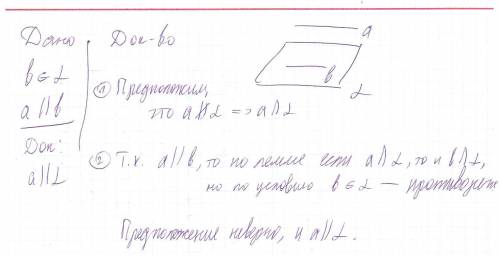 Дано
в ∈ α
a || в
Док:
a || α
Док-во
① Предположим,
что a ∦ α => a ∩ α
② Т.к. a || в, то по лемме если a ∩ α, то и в ∩ α,
но по условию в ∈ α — противореч
Предположение неверно, и a || α.
a
в
α